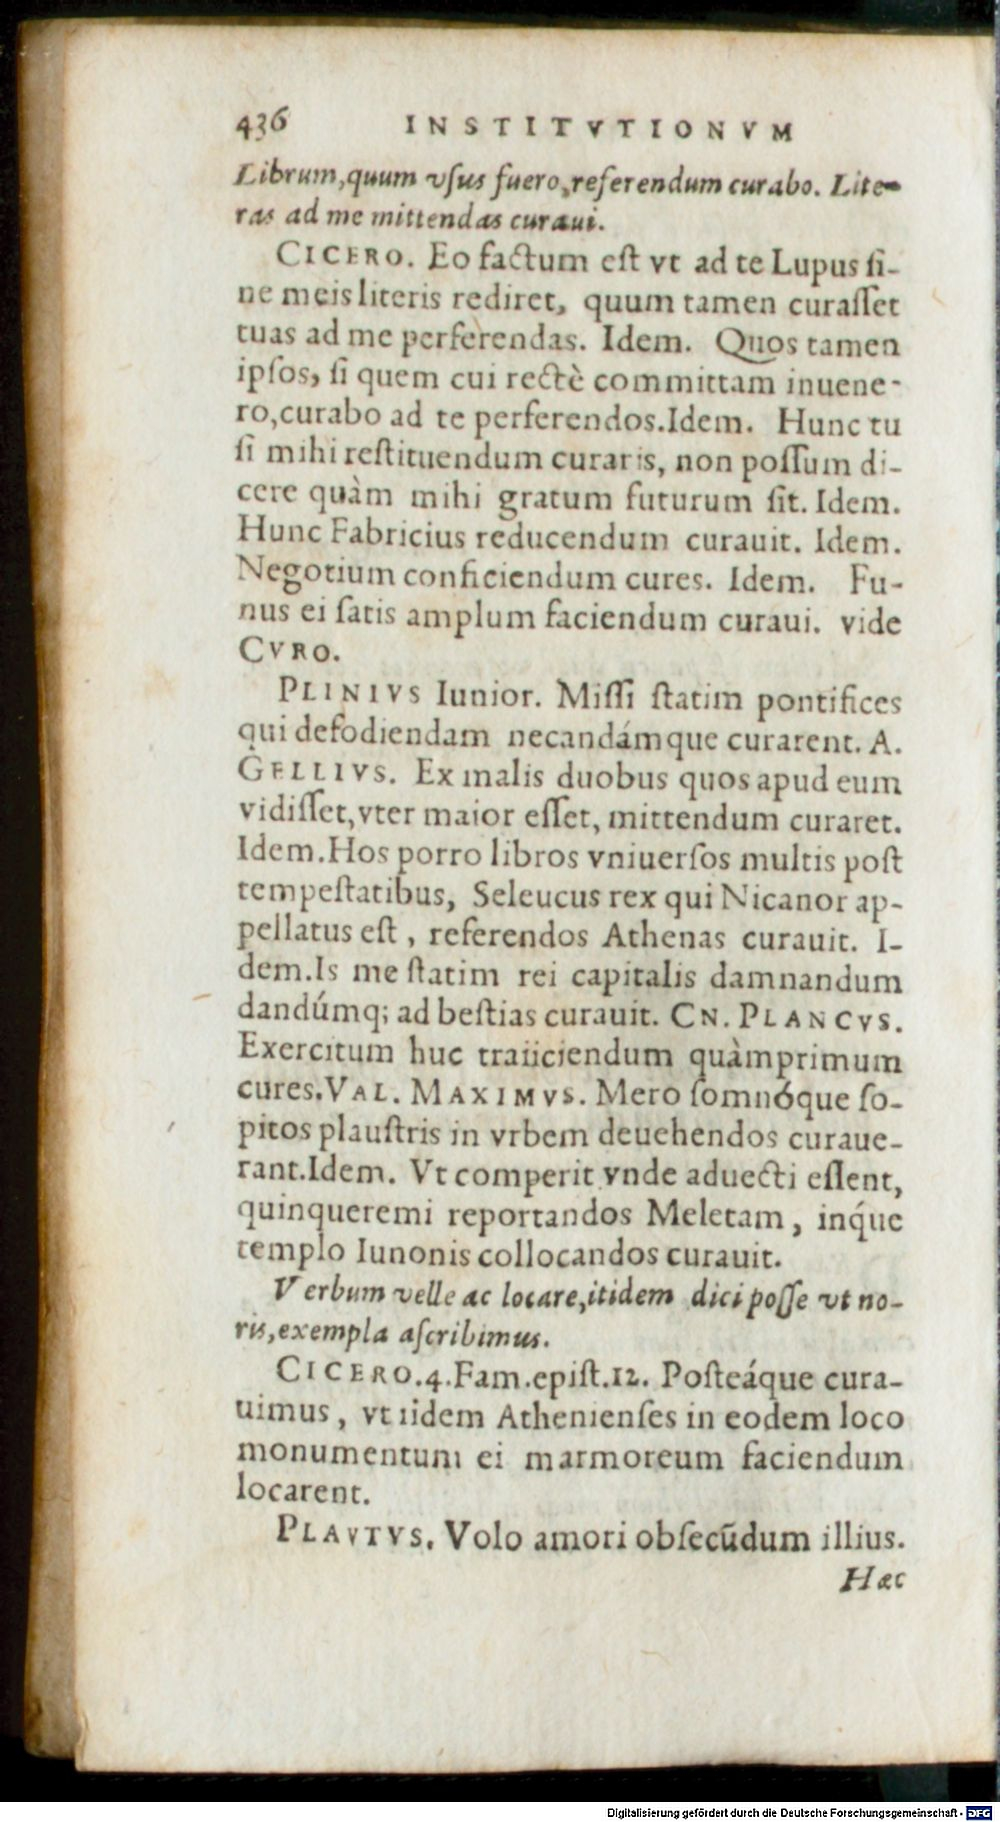 436 INSTITVTIONVM
Librum,quum vſus fuero,referendum curabo. Lite-
ras ad me mittendas curaui.
CICERO. Eo factum eſt vt ad te Lupus ſi-
ne meis literis rediret, quum tamen curaſſet
tuas ad me perferendas. Idem. Quos tamen
ipſos, ſi quem cui rectè committam inuene-
ro,curabo ad te perferendos.Idem. Hunc tu
ſi mihi reſtituendum curaris, non poſſum di-
cere quàm mihi gratum futurum ſit. Idem.
Hunc Fabricius reducendum curauit. Idem.
Negotium conficiendum cures. Idem. Fu-
nus ei ſatis amplum faciendum curaui. vide
CVRO.
PLINIVS Iunior. Miſſi ſtatim pontifices
qui defodiendam necandámque curarent. A.
GELLIVS. Ex malis duobus quos apud eum
vidiſſet,vter maior eſſet, mittendum curaret.
Idem.Hos porro libros vniuerſos multis poſt
tempeſtatibus, Seleucus rex qui Nicanor ap-
pellatus eſt, referendos Athenas curauit. I-
dem.Is me ſtatim rei capitalis damnandum
dandúmq; ad beſtias curauit. CN. PLANCVS.
Exercitum huc traiiciendum quàmprimum
cures.VAL. MAXIMVS. Mero ſomnóque ſo-
pitos plauſtris in vrbem deuehendos curaue-
rant.Idem. Vt comperit vnde aduecti eſſent,
quinqueremi reportandos Meletam, inq́ue
templo Iunonis collocandos curauit.
Verbum velle ac locare,itidem dici poſſe vt no-
ris,exempla aſcribimus.
CICERO.4.Fam.epiſt.12. Poſteáque cura-
uimus, vt iidem Athenienſes in eodem loco
monumentum ei marmoreum faciendum
locarent.
PLAVTVS. Volo amori obſecũdum illius.
Hæc
Digitalisierung gefördert durch die Deutsche Forschungsgemeinschaft - DFG